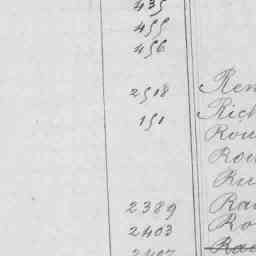 435
455
456
2518 Ren
151 Rich
Rou
Rou
Ru
2389 Ra
2403 Ro
2407 Rae